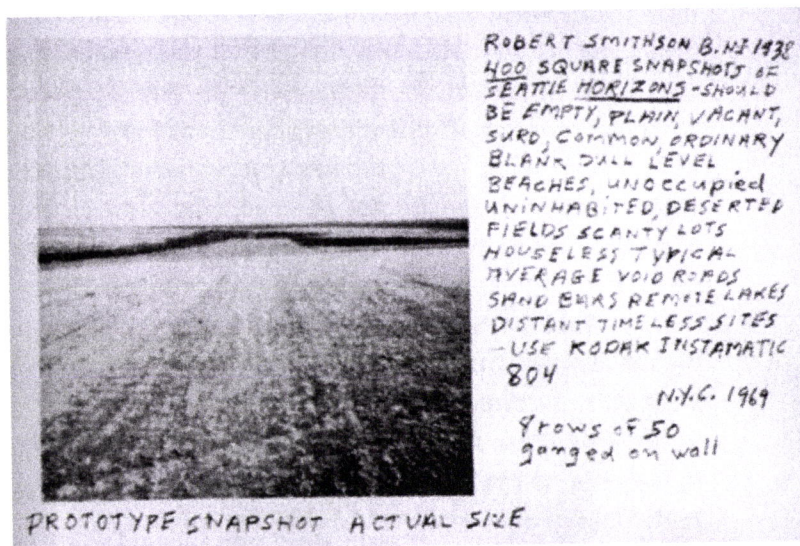 ROBERT SMITHSON B. NJ 1938
400 SQUARE SNAPSHOTS OF
SEATTLE HORIZONS - SHOULD
BE EMPTY, PLAIN, VACANT,
SURD, COMMON, ORDINARY
BLANK DULL LEVEL
BEACHES, UNOCCUPIED
UNINHABITED, DESERTED
FIELDS SCANTY LOTS
HOUSELESS TYPICAL
AVERAGE VOID ROADS
SAND BARS REMOTE LAKES
DISTANT TIMELESS SITES
- USE KODAK INSTAMATIC
804
N.Y.C. 1969
rows of 50
ganged on wall
PROTOTYPE SNAPSHOT ACTUAL SIZE